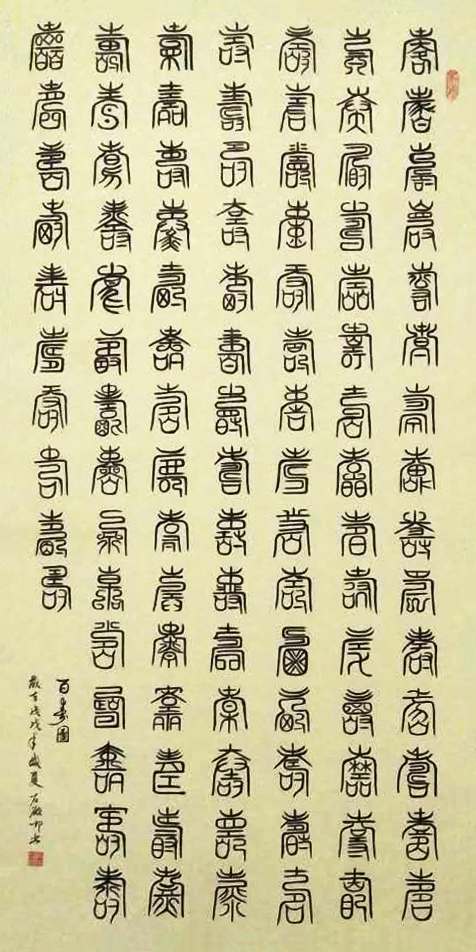 壽壽壽壽壽壽壽壽壽壽壽壽壽壽壽
壽壽壽壽壽壽壽壽壽壽壽壽壽壽壽
壽壽壽壽壽壽壽壽壽壽壽壽壽壽壽
壽壽壽壽壽壽壽壽壽壽壽壽壽壽壽
壽壽壽壽壽壽壽壽壽壽壽壽壽壽壽
壽壽壽壽壽壽壽壽壽壽壽壽壽壽壽
壽壽壽壽壽壽壽壽壽壽
百寿圖
歲在戊戌年盛夏